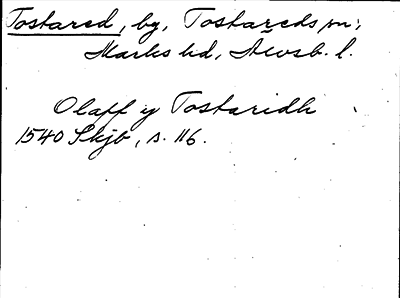 Tostared, by, Tostareds sn;
Marks hd, Älvsb. l.
Olaff y Tostaridh
1540 Skjb, s. 116.